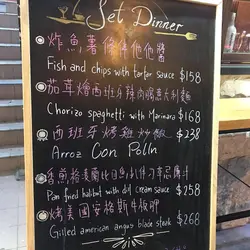 Set Dinner
炸魚薯條伴他他醬
Fish and chips with tarfar sauce $158
茄茸燴西班牙辣肉腸意大利麵
Chorizo spaghetti with Marinara $168
西班牙烤雞炒飯 $238
Arroz Con Pollo
香煎格陵蘭比目魚扒伴刁草忌廉汁
Pan fried halibut with dill cream sauce $258
烤美國安格斯牛板腱
Grilled american angus blade steak $268